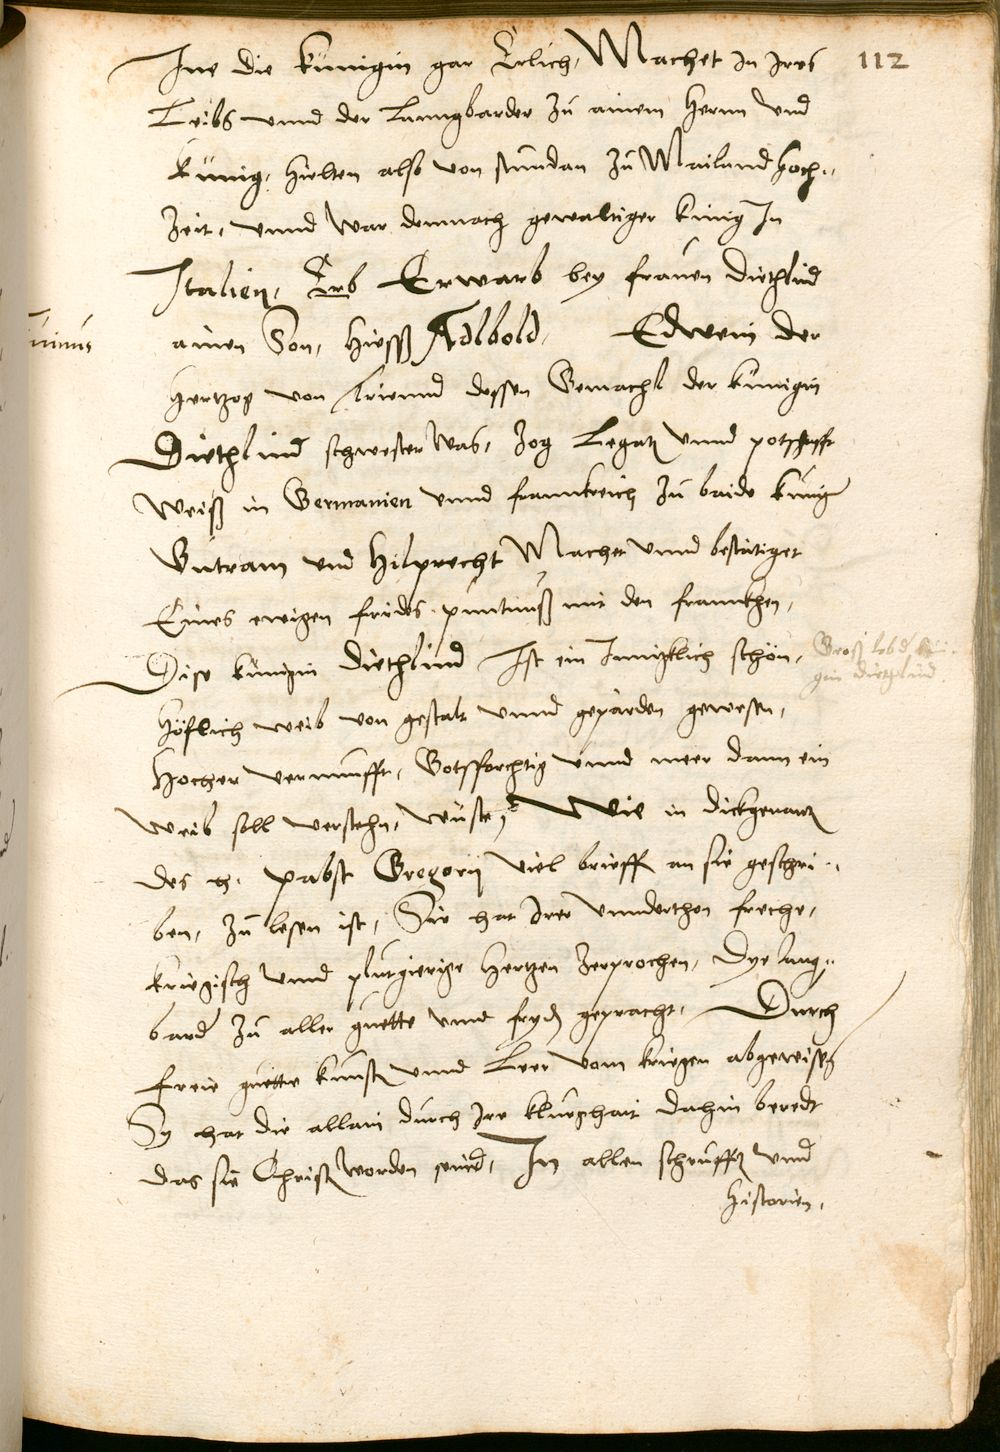 112
Ine die künigin gar Erlich, Machet In Ires
Leibs vnnd der Lanngbarder zů ainem Herrn vnd
künig, hielten also von stundan zů Mailand hoch„
zeit, vnnd war demnach gewaltiger künig In
Italien, Erb Erwarb bey frauen Diethlind
ainen Son, hiesß Adlbold, Edwein der
hertzog von Triennd dessen Gemachl der künigin
Diethlind schwester was, zog Legatz vnnd potschafft
weiß in Germanien vnnd frannkreich zů baide künig
Gutram vnd Hilprecht Machet vnnd bestätiget
Eines ewigen frides püntnuß mit den frannkhen,
Dise künigin Diethlind Ist ein Innigklich schön,
Groß lob d kü
gin Diethlind
höflich weib von gestalt vnnd geparden gewesen,
Hocher vernunfft, Gotsforchtig vnnd meer dann ein
weib soll verstehn, wüste, Wie in dickgenantz
des h. pabst Gregorij viel brieff an sie geschri„
ben, zů lesen ist, Sie hat Irer vnnderthon freche,
kriegisch vnnd plutgierige hertzen zerprochen, Dye lang„
bard zů aller guette vnnd fryd gepracht, Durch
freie guette kunst vnnd Leer vom kriegen abgewisen
Sy hat die allain durch Ire klueghait dahin beredt
das sie Christ worden seind, In allen schrufften vnnd
historien,